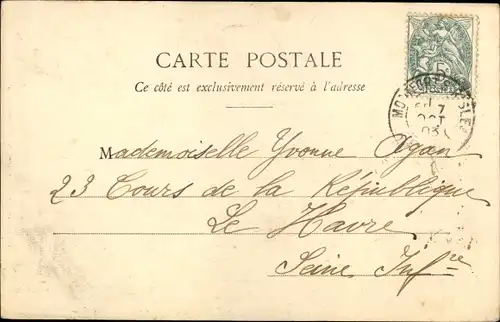 CARTE POSTALE
Ce côté est exclusivement réservé à l'adresse
5
7
OCT
03
Mademoiselle Yvonne Ogan
23 Cours de la République
Le Havre
Seine Infre